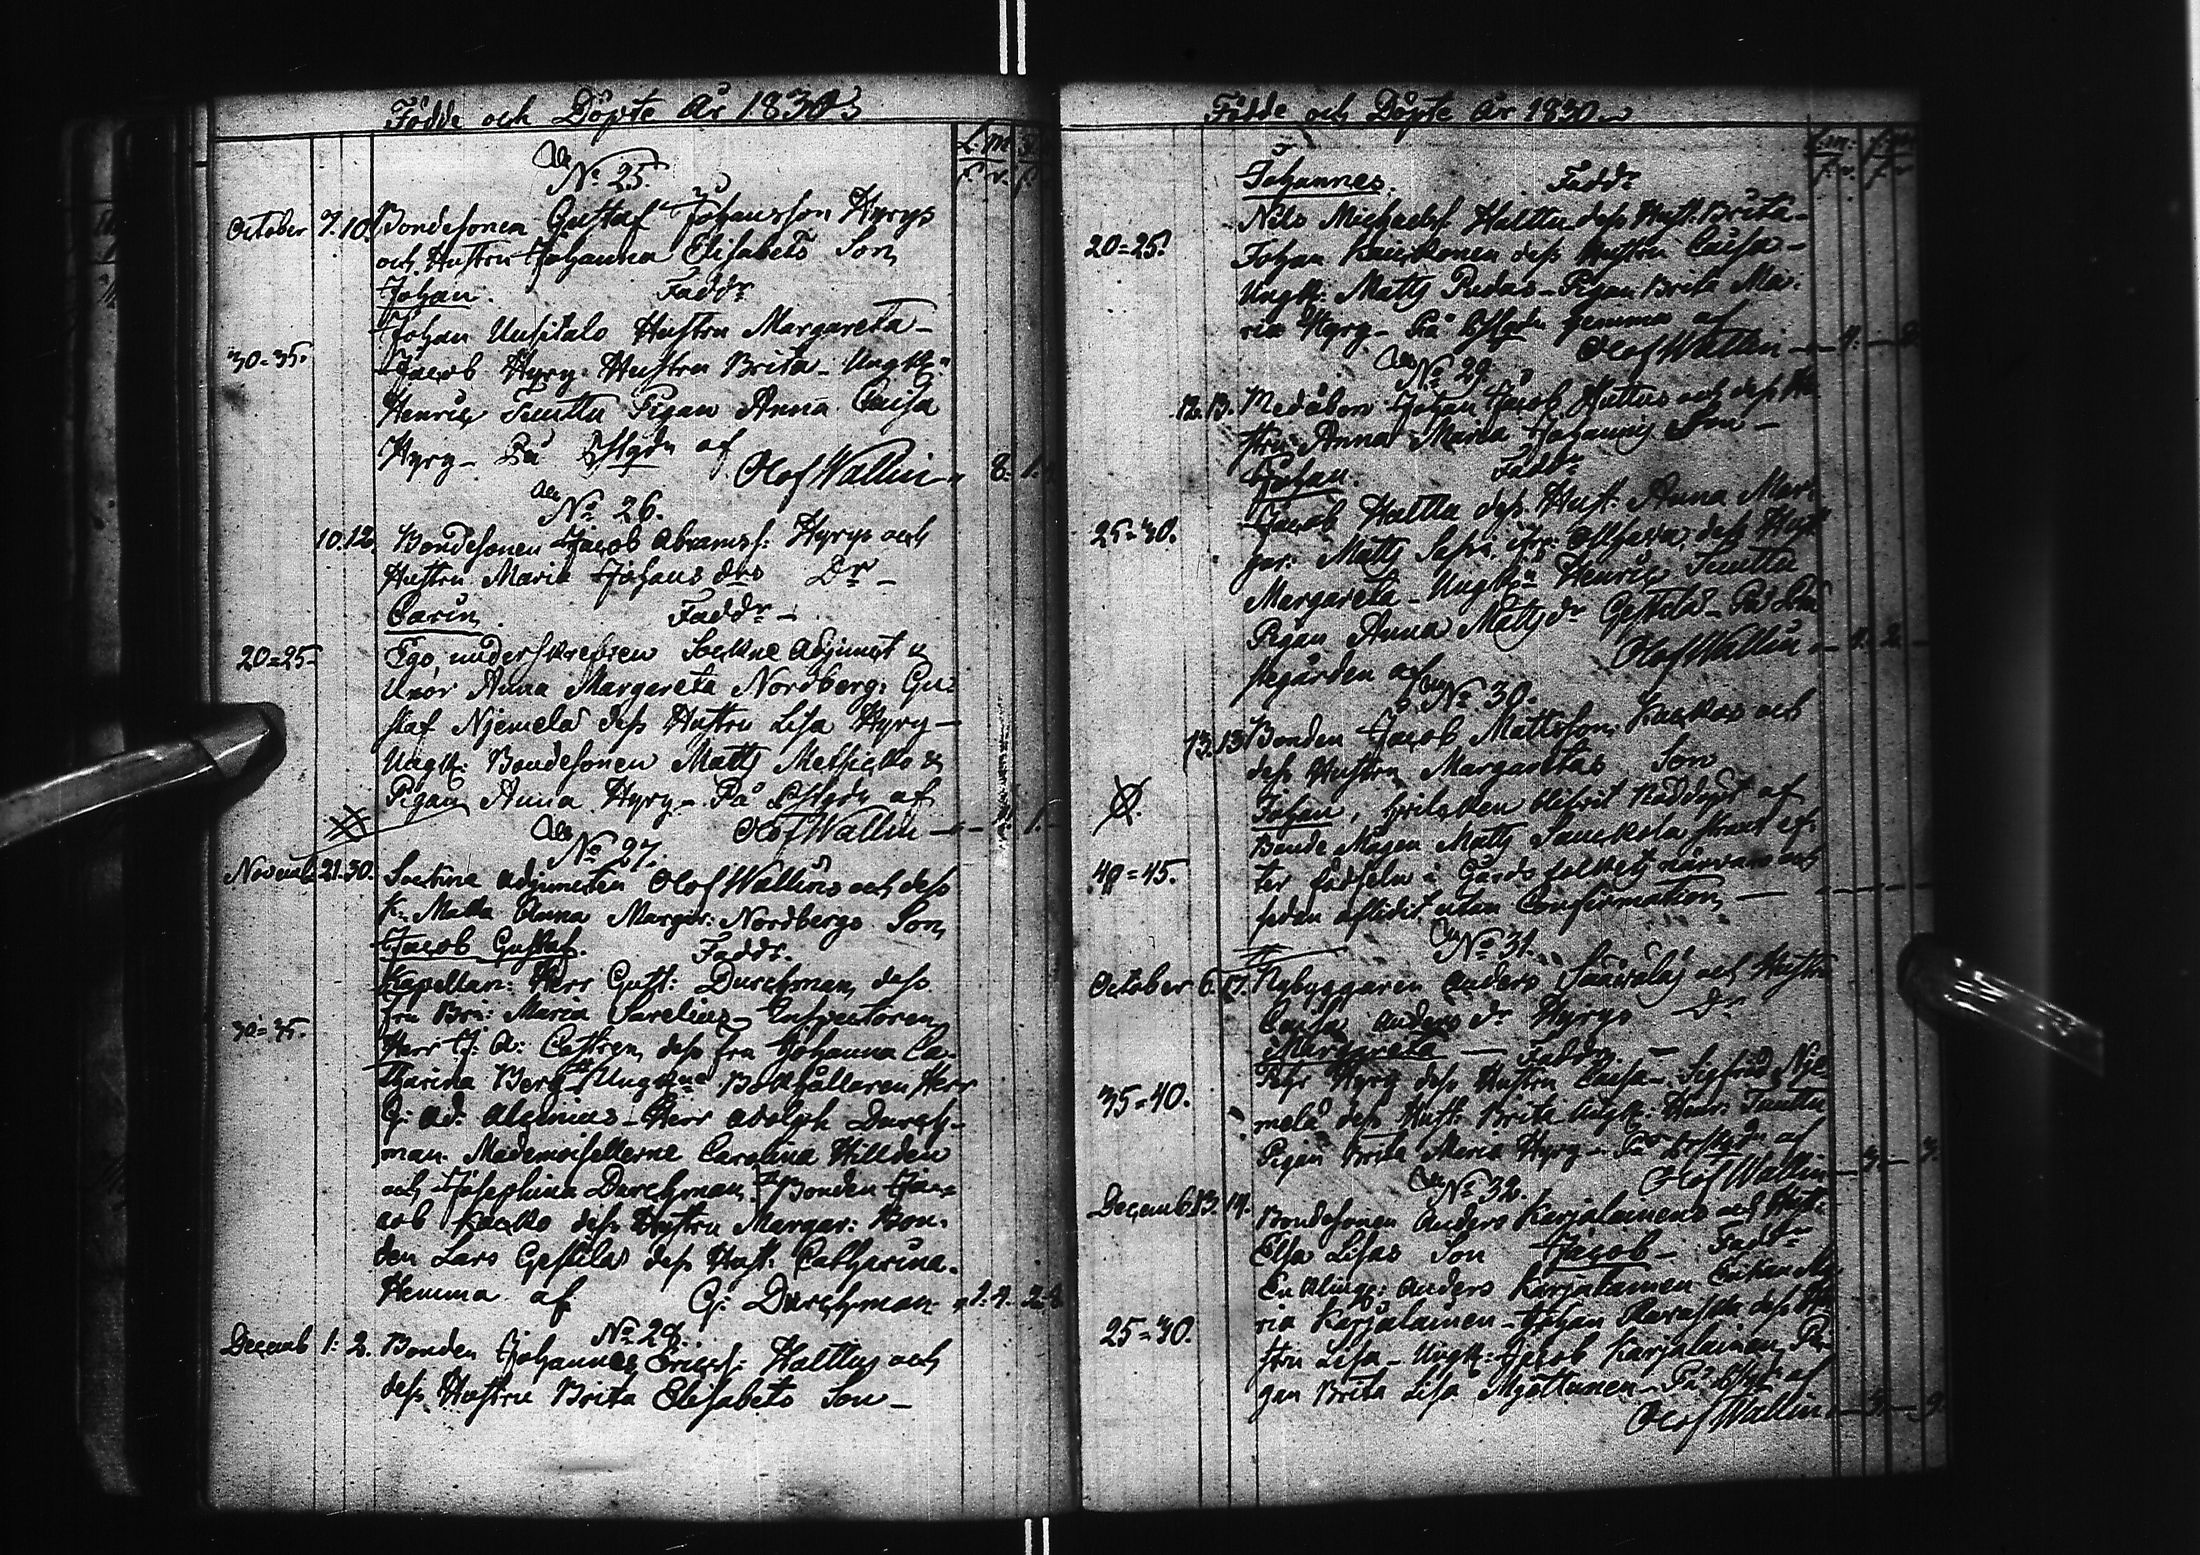 Födde och Döpte År 1830
L. m.
f. v. f.
No 25.
October 7. 10. Bondesonen Gustaf Johansson Hyrys
och Hustru Johanna Elisabets Son
Johan. Faddr
Johan Uusitalo Hustru Margareta –
30=35. Jacob Hyry. Hustru Brita – Ungk:
Henric Tuuttu Pigan Anna Caisa
Hyry – På Pstgdn af
Olof Wallin – 8. 1.
No 26.
10. 12. Bondesonen Jacob Abramss: Hyrys och
Hustru Maria Johans drs Dr –
Carin. Faddr –
20=25 Ego, underskrefven Sockne Adjunct
Uxor Anna Margareta Nordberg: Gu=
staf Njemelä dess Hustru Lisa Hyry –
Ungk: Bondesonen Matts &
Pigan Anna Hyry – På Pstgdn af
Olof Wallin – 1.
No 27.
Novemb 21. 30. Sockne Adjuncten Olof Wallins och dess
K: Maka Anna Margar: Nordbergs Son
Jacob Gustaf. Faddr.
Kapellan: Herr Gust: Durchman, dess
fru Bri: Maria Sarelius – Inspectoren
30=35. Herr J: A: Castren, dess fru Johanna Ca=
tharina Berg Bokhållaren Herr
G: Ad: Alcenius – Herr Adolph Durch=
man. Mademoisellerne Carolina Hillden
och Josephina Durchman. Bonden Ja=
cob Kaakko dess Hustru Margar: Bon=
den Lars Gestilä dess Hust. Catharina.
Hemma af G: Durchman
No 28.
Decemb 1. 2. Bonden Johannes Ericss: Halttus och
dess Hustru Brita Elisabets Son –
Födde och Döpte År 1830
f. m. f. m.
f. v. f. v.
Johannes. Faddr
Nils Michaelss Halttu dess Hust. Brita –
20=25. Johan dess Hustru Caisa –
Ungk: Matts Pudas – Pigan Brita Ma=
ria Hyry – På hemma af
Olof Wallin
No 29
12. 13. Johan Jacob Huttus och dess Hu
stru Anna Maria Son –
Johan. Faddr
Jacob Huttu dess Hust. Anna Mar
25=30. gar: Matts dess Hust
Margareta – Ungk: Henric Tuuttu
Pigan Anna Matts dr Gestilä – På Pre
stegården af Olof Wallin – 1. 2. –
No 30.
13. 13. Bonden Jacob Mattsson Kaakkos och
dess Hustru Margaretas Son
Johan, hvilcken blifvit Näddöpt af
Bonde Mågen Matts strax ef=
40=45. ter födseln i Gårds folkets närvaro och
sedan aflidit utan Confirmation –
No 31.
October 6. 17. Nybyggaren Anders och Hustru
Caisa Anders dr Hyrys Dr
Margareta – Faddr –
Pehr Hyry dess Hustru Caisa – Sigfrid Nje=
35=40. melä dess Hust. Brita Ungk: Henr: Tuuttu
Pigan Brita Maria Hyry – På Pstgdn af
Olof Wallin – 3.
No 32.
Decemb. 13. 14. Bondesonen Anders Karjalainens och Hust:
Elsa Lisas Son Jacob – Faddr
Enkling: Anders Karjalainen Enkan Ma
25=30. ria Karjalainen – Johan dess Hu
stru Lisa – Ungk: Jacob Karjalainen, Pi=
gan Brita Lisa Myöttänen – På Pstgdn af
Olof Wallin